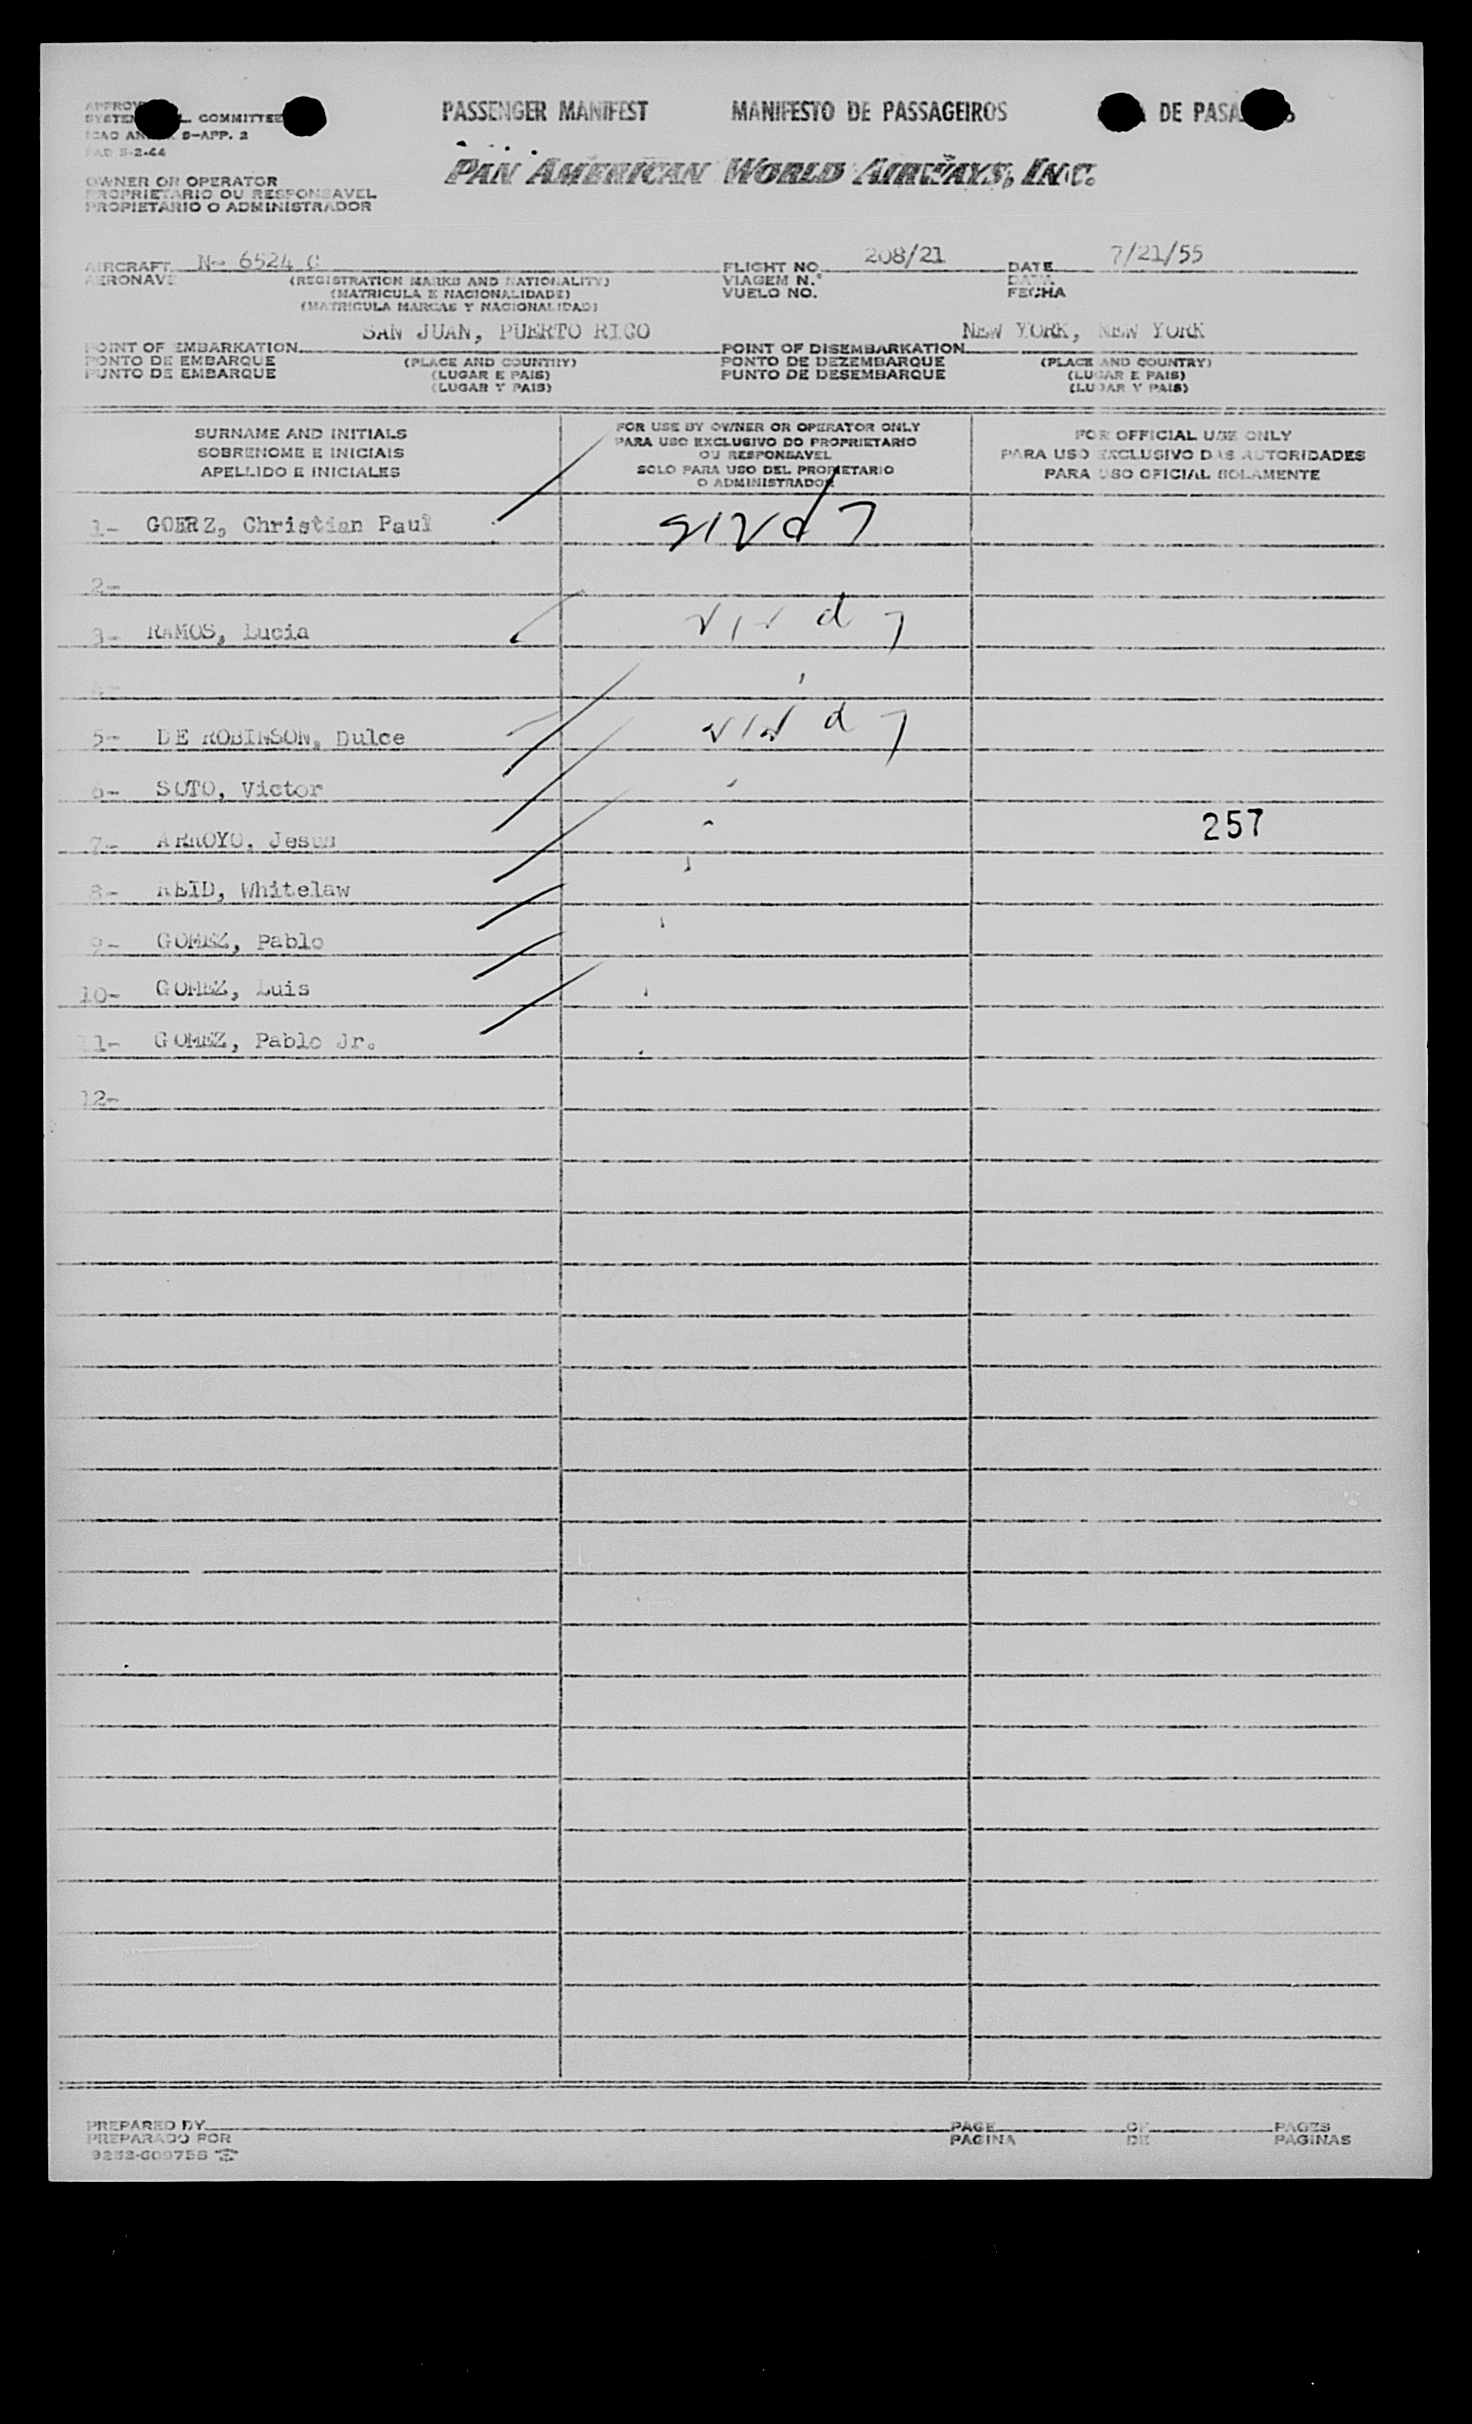 PASSENGER MANIFEST MANIFESTO DE PASSAGEIROS DE
COMMITTEE
S-APP. 2
PAN AMERICAN WORLD AIRWAYS, INC.
OWNER OR OPERATOR
PROPRIETARIO OU RESPONSAVEL
PROPIETARIO O ADMINISTRADOR
AIRCRAFT N- 6524 C FLIGHT NO. 208/21 DATE 7/21/55
AERONAVE (REGISTRATION MARKS AND NATIONALITY) VIAGEM N.° DATA
(MATRICULA E NACIONALIDADE) VUELO NO. FECHA
(MATRICULA MARCAS Y NACIONALIDAD)
SAN JUAN, PUERTO RICO NEW YORK, NEW YORK
POINT OF EMBARKATION POINT OF DISEMBARKATION
PONTO DE EMBARQUE (PLACE AND COUNTRY) PONTO DE DEZEMBARQUE (PLACE AND COUNTRY)
PUNTO DE EMBARQUE (LUGAR E PAIS) PUNTO DE DESEMBARQUE (LUGAR E PAIS)
(LUGAR Y PAIS) (LUGAR Y PAIS)
SURNAME AND INITIALS
SOBRENOME E INICIAIS
APELLIDO E INICIALES
FOR USE BY OWNER OR OPERATOR ONLY
PARA USO EXCLUSIVO DO PROPRIETARIO
OU RESPONSAVEL
SOLO PARA USO DEL PROPIETARIO
O ADMINISTRADOR
FOR OFFICIAL USE ONLY
PARA USO EXCLUSIVO DAS AUTORIDADES
PARA USO OFICIAL SOLAMENTE
1- GOERZ, Christian Paul
2-
3- RAMOS, Lucia
4-
5- DE ROBINSON, Dulce
6- SOTO, Victor
7- ARROYO, Jesus
257
8- REID, Whitelaw
9- GOMEZ, Pablo
10- GOMEZ, Luis
11- GOMEZ, Pablo Jr.
12-
PREPARED BY PAGE OF PAGES
PREPARADO POR PAGINA DE PAGINAS